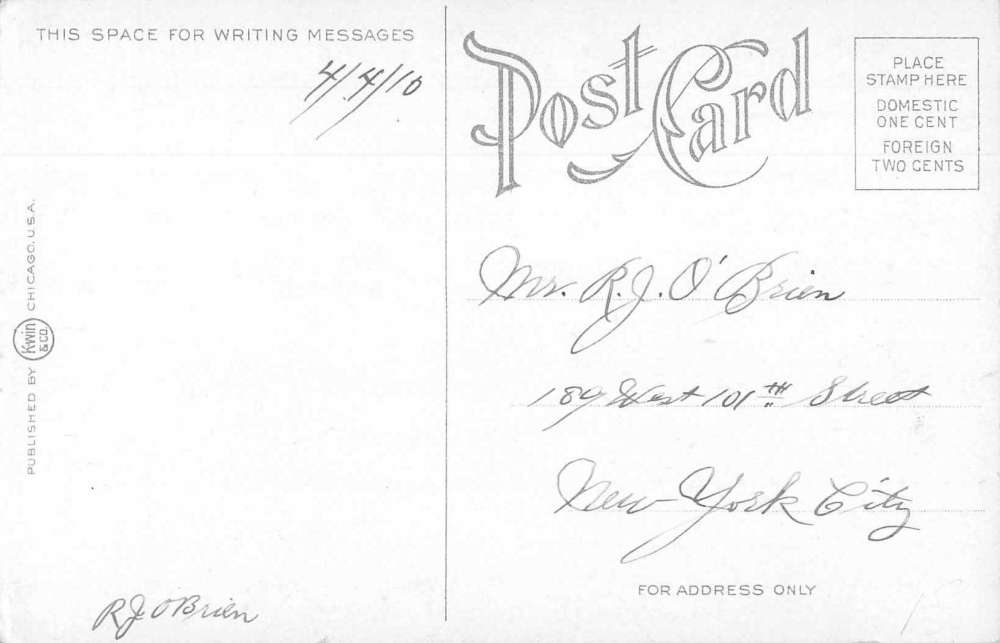 THIS SPACE FOR WRITING MESSAGES
4/4/10
PUBLISHED BY Kwin & CO. CHICAGO, U.S.A.
R J O'Brien
Post Card
PLACE
STAMP HERE
DOMESTIC
ONE CENT
FOREIGN
TWO CENTS
Mr. R. J. O'Brien
189 West 101TH Street
New York City
FOR ADDRESS ONLY